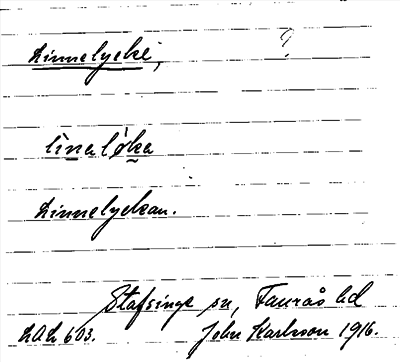 Linnelycke, ?
linelöka
Linnelyckan.
Stafsinge sn, Faurås hd
LAL 603. John Karlsson 1916.